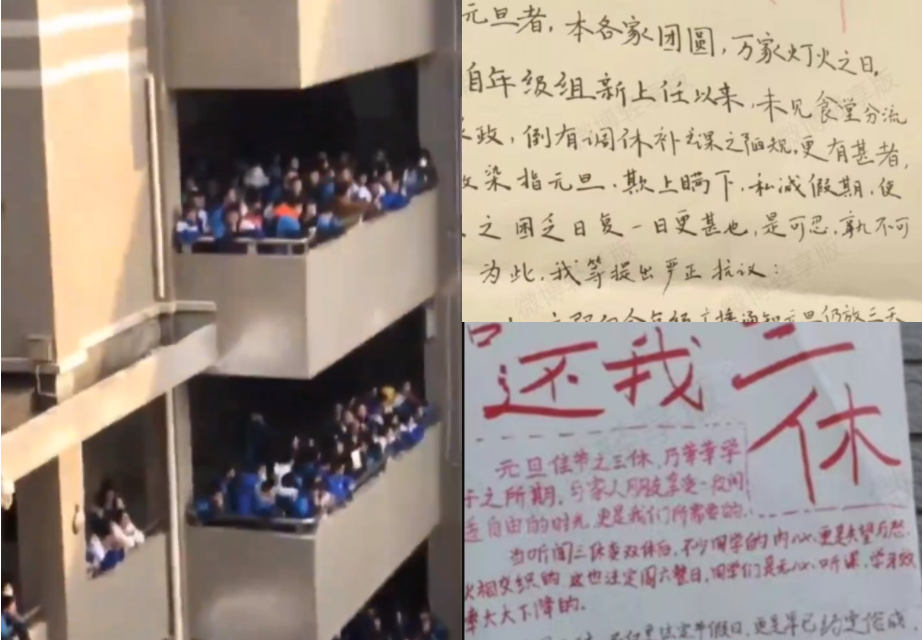 元旦者,本各家团圆,万家灯火之日,
自年级组新上任以来,未见食堂分流
政,倒有调休补课之陋规,更有甚者,
染指元旦,欺上瞒下,私减假期,使
之困乏日复一日更甚也,是可忍,孰不可
为此,我等提出严正抗议:
还我三
休
元旦佳节之三休,乃莘莘学
子之所期,与家人朋友享受一段闲
适自由的时光,更是我们所需要的。
当听闻三休变双休后,不少同学的内心,更是失望与怒
火相交织的,这也注定周六整日,同学们是无心听课,学习效
率大大下降的。